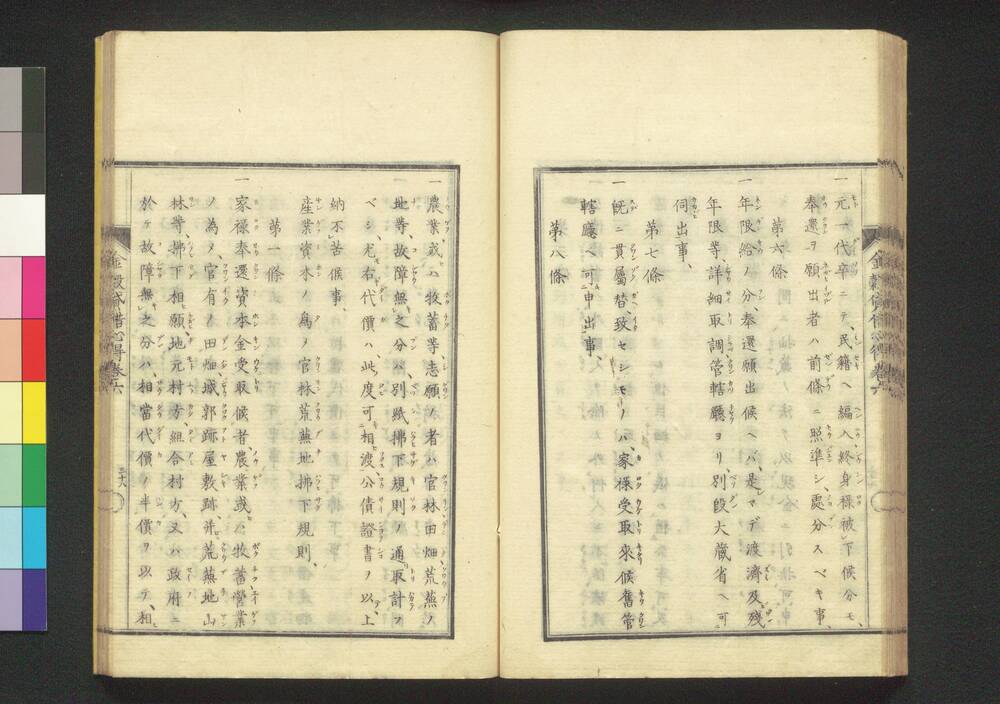 一 元一代卒ニテ、民籍ヘ編入終身祿被下候分モ、
奉還ヲ願出者ハ前條ニ照準シ、處分スベキ事、
第六條
一 年限給ノ分、奉還願出候ヘバ、是マデ渡濟及殘
年限等、詳細取調管轄廳ヨリ、別段大藏省ヘ可
伺出事、
第七條
一 既ニ貫屬替、致セシモノハ、家祿受取來候舊管
轄廳ヘ可申出事、
第八條
一 農業或ハ牧蓄等志願ノ者ハ官林田畑荒蕪ノ
地等、故障無之分ハ別紙拂下規則ノ通取計フ
ベシ、尤右代價ハ、此度可相渡公債證書ヲ以上
納不苦候事、
産業資本ノ爲メ官林荒蕪地拂下規則、
第一條
一 家祿奉還資本金受取候者、農業或ハ牧蓄營業
ノ為メ、官有ノ田畑城郭跡屋敷跡并荒蕪地山
林等、拂下相願、地元村方組合村方、又ハ政府ニ
於テ故障無之分ハ相當代價ノ半價ヲ以テ、相
金穀貸借心得 卷六